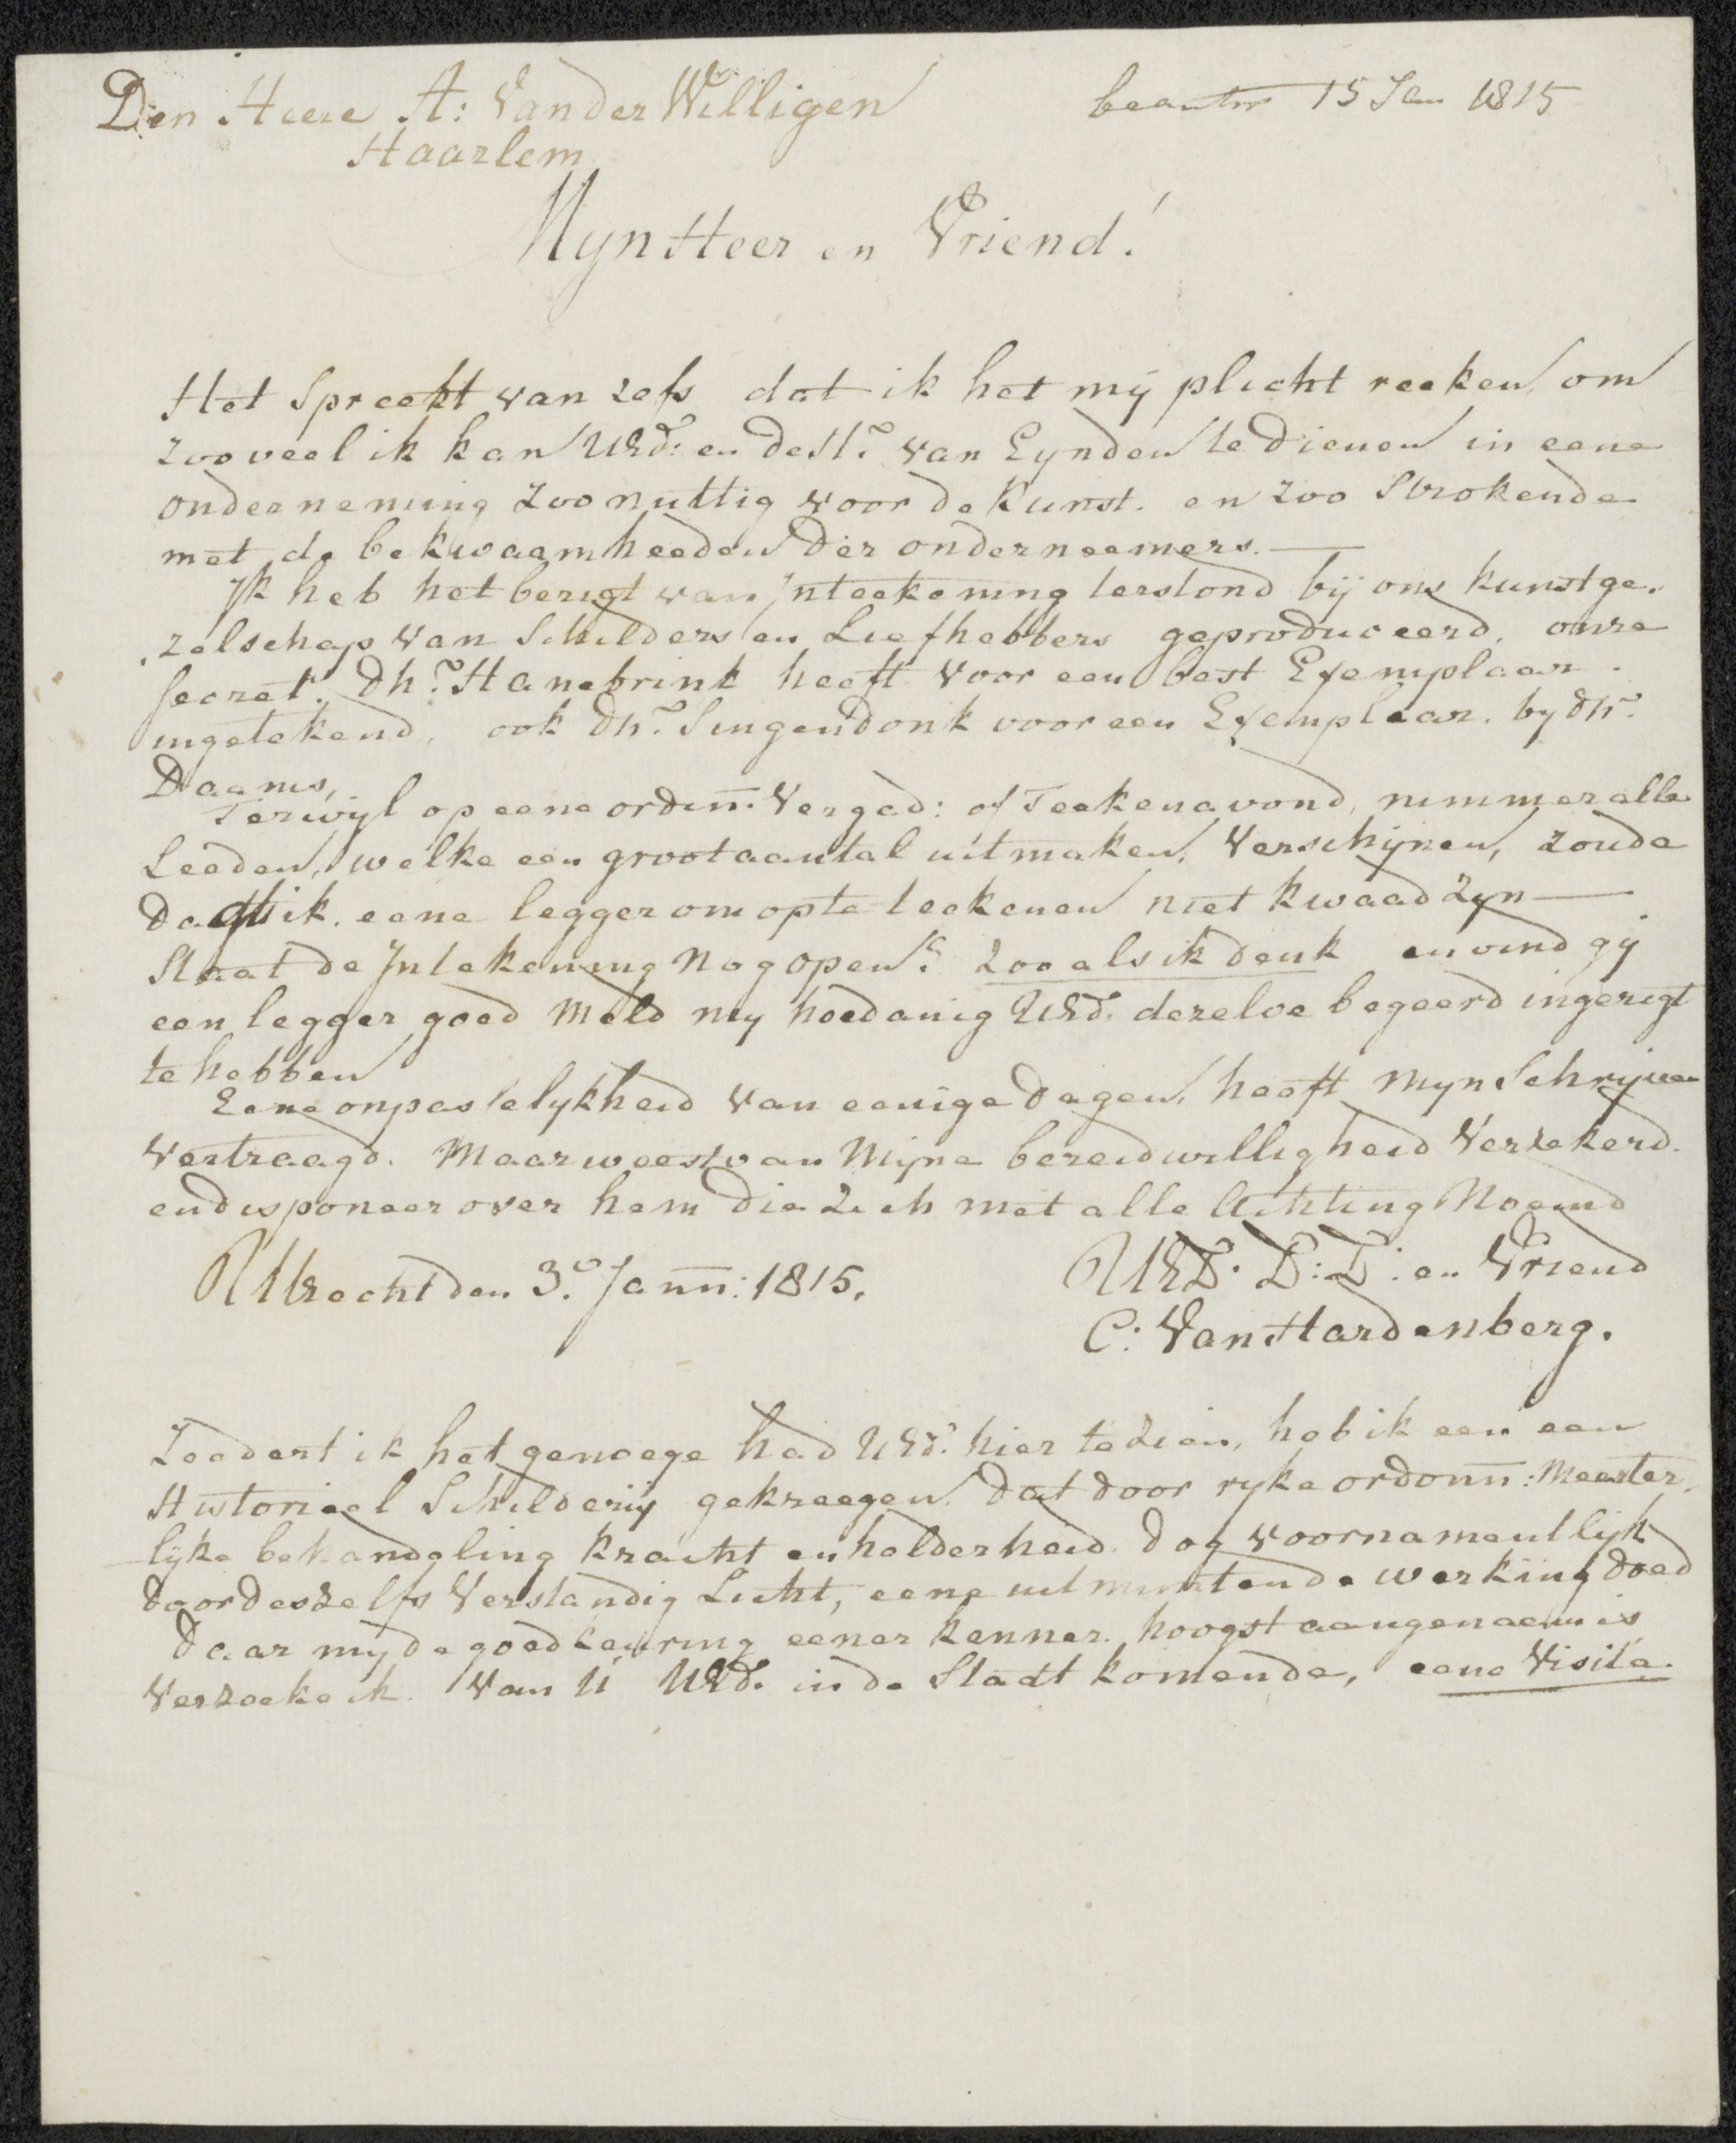 Den Heere A: Van der Willigen
beantw 15 Jan 1815
Haarlem
Myn Heer en Vriend!
Het Spreekt van zefs dat ik het mij plicht reeken om
zoo veel ik kan UEd: en de Hr. van Eynden te dienen in eene
onderneming zoo nuttig voor de Kunst. en zoo Strokende
met de bekwaamheeden der onderneemers. —
Ik heb het berigt van Inteekening terstond bij ons kunstge-
zelschap van Schilders en Liefhebbers geproduceerd. onze
Secret. dhr. Hanebrink heeft voor een best Exemplaar
ingetekend, ook dhr. Singendonk voor een Exemplaar. by dhr.
Daams,
Terwijl op eene ordinn: Vergad: of Teekenavond, nimmer alle
Leeden, welke een groot aantal uitmaken, Verschijnen, zoude
dagt ik. eene legger om op te teekenen niet kwaad zyn —
Staat de Intekening nog open? zoo als ik denk en vind gij
een legger goed meld my hoedanig UEd. dezelve begeerd ingerigt
te hebben
Eene onpasselykheid van eenige dagen, heeft myn Schrijven
Vertraagd. Maar weest van Mijne bereidwilligheid Verzekerd.
en disponeer over hem die zich met alle Achting Noemd
Utrecht den 3e. Jann: 1815.
UED. D:D: en Vriend
C: Van Hardenberg.
Zeedert ik het genoege had UEd. hier te zien, heb ik een een
Historieel Schilderij gekreegen. dat door ryke ordonn: Meester-
lijke behandeling kracht en helderheid. dog voornamentlijk
door deszelfs Verstandig Licht, eene uitmuntende werking doed
daar my de goedkeuring eener kenner. hoogst aangenaam is
Verzoeke ik. van U UEd. in de Stadt komende, eene Visite.